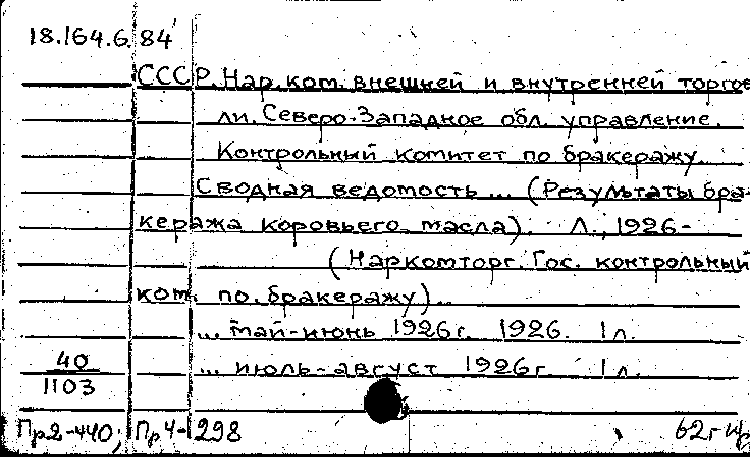 18.164.6.84
СССР. Нар. ком. внешней и внутренней торгов
ли. Северо-Западное обл. управление.
Контрольный комитет по бракеражу.
Сводная ведомость ... (Результаты бра-
кеража коровьего масла). Л., 1926-
(Наркомторг. Гос. контрольный
ком. по. бракеражу)..
... май-июнь 1926г. 1926. 1 л.
40
... июль-август 1926г. 1 л.
1103
Пр2-440; Пр4-1298 62г